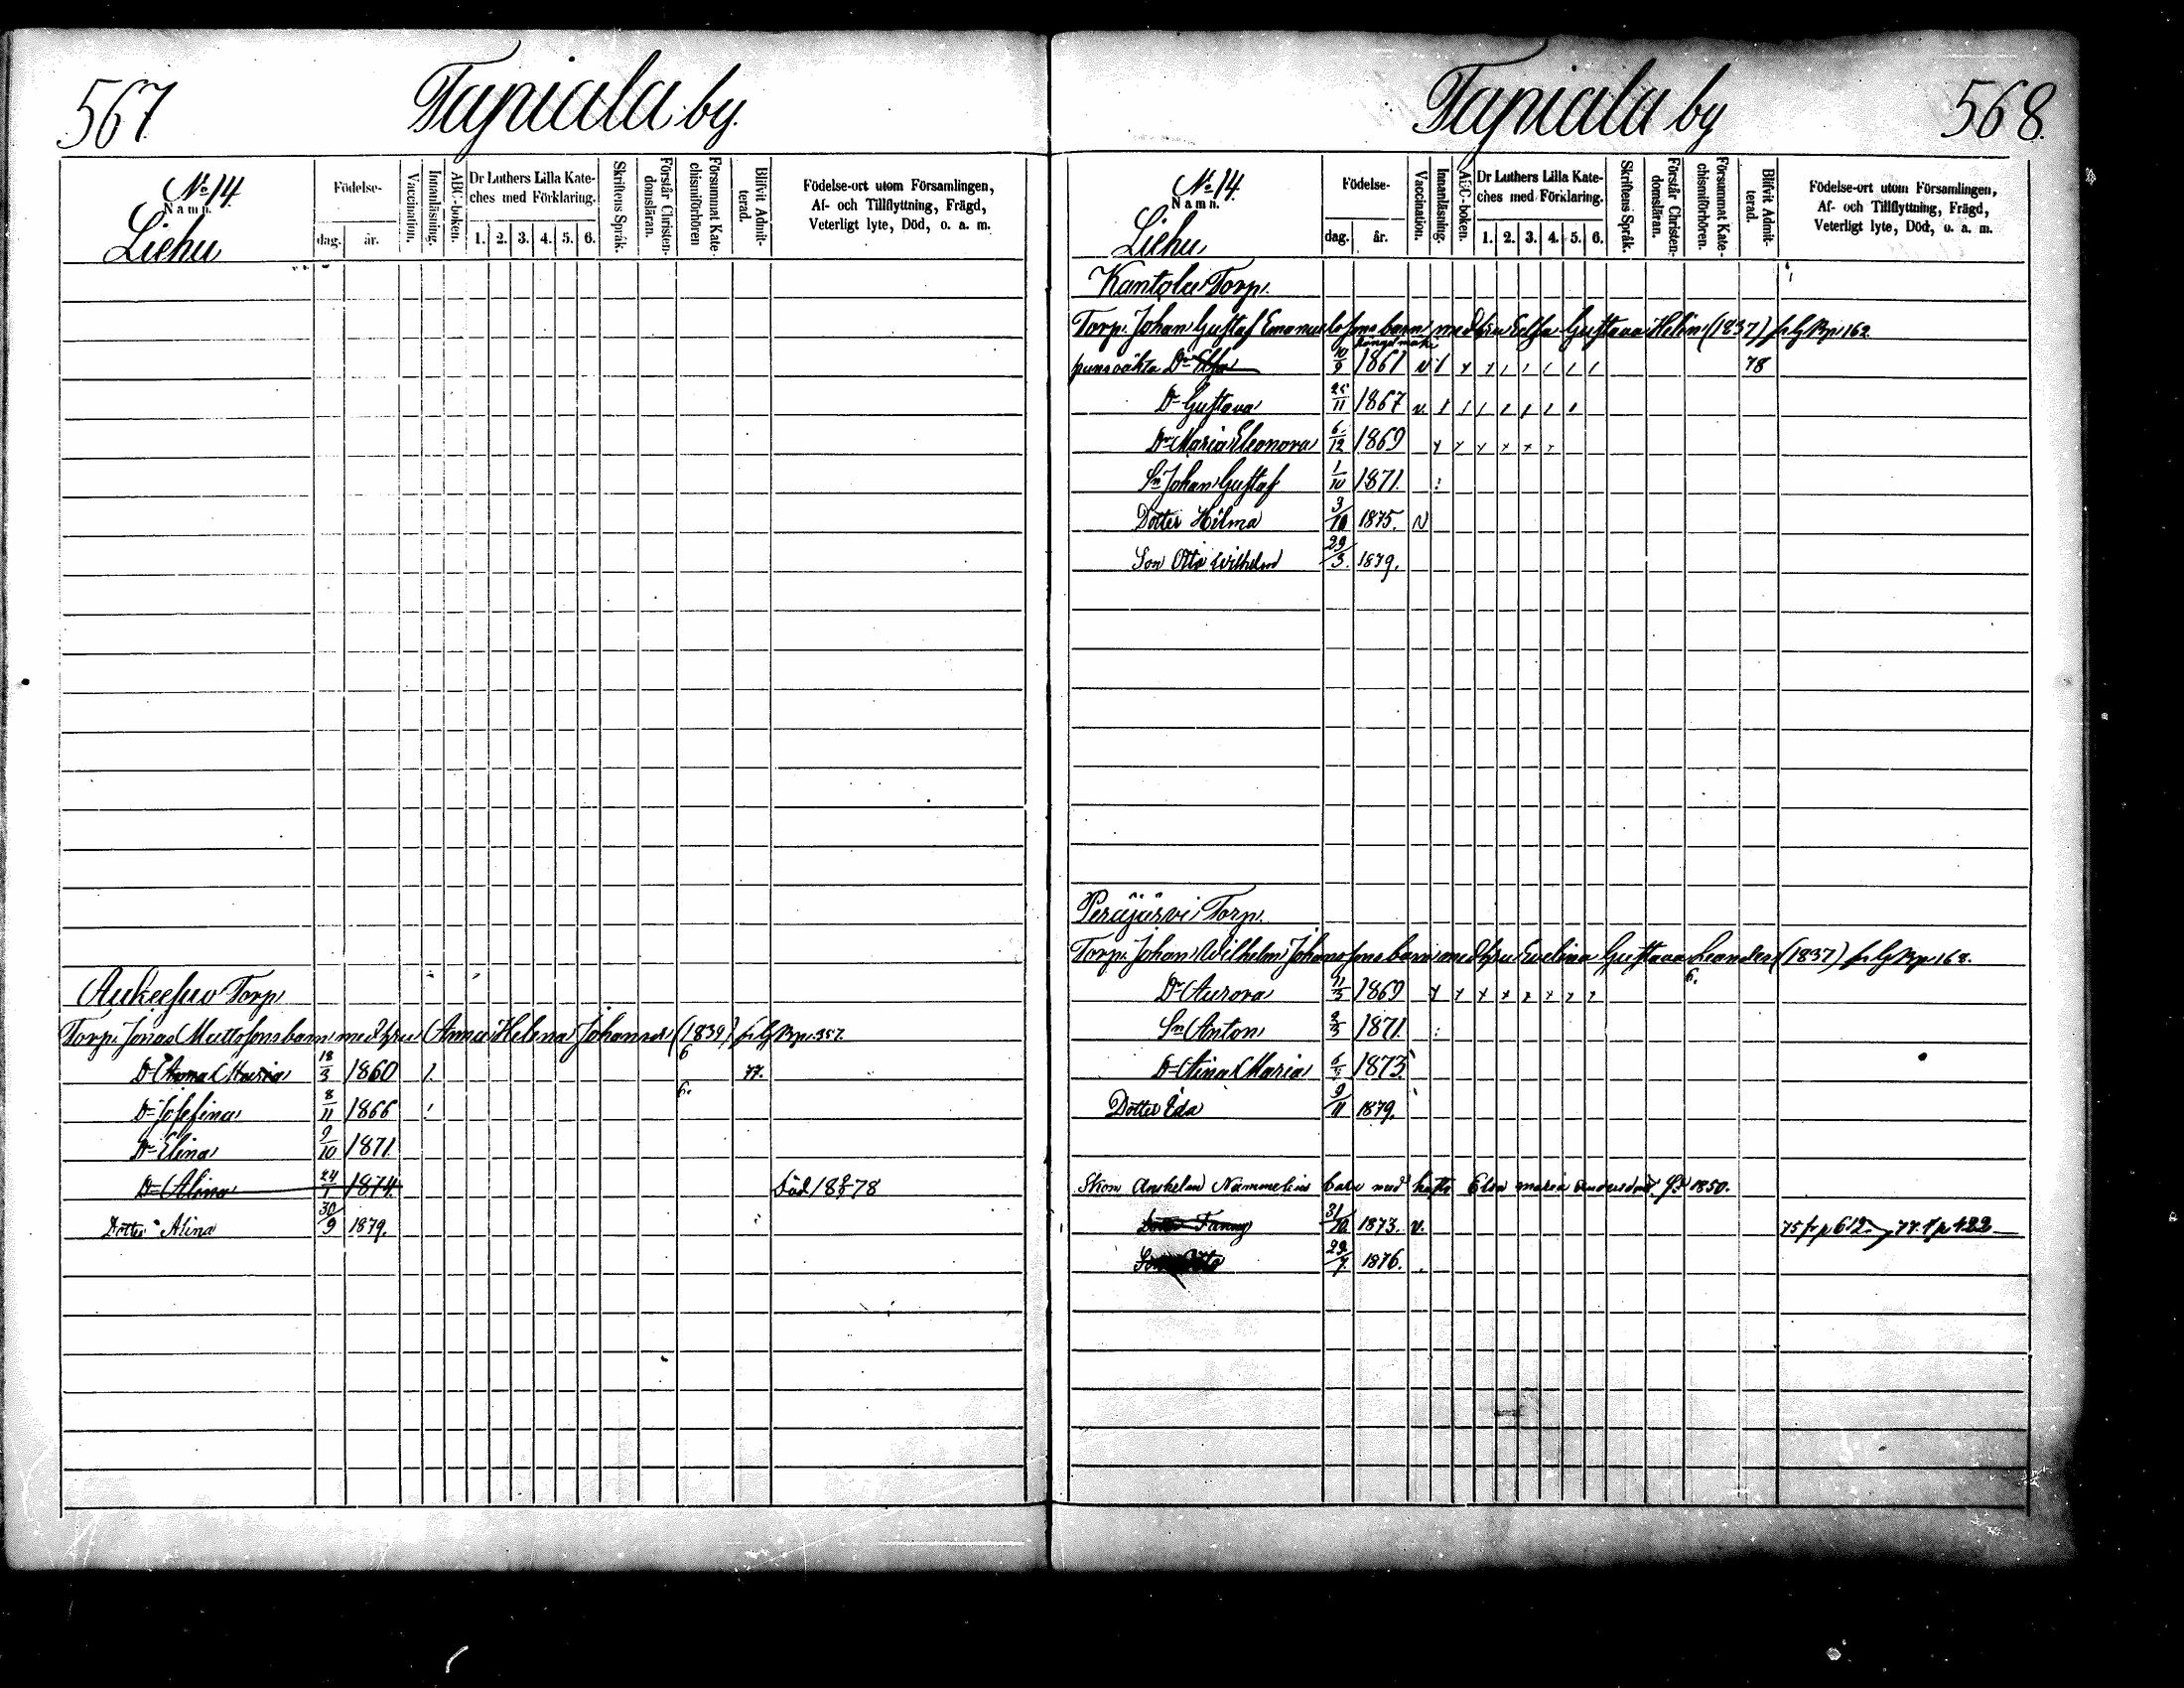 567 Tapiala by.
No 14
Namn.
Liehu
Födelse-
dag. år.
Vaccination.
Innanläsning.
ABC-boken.
Dr Luthers Lilla Kate-
ches med Förklaring.
1. 2. 3. 4. 5. 6.
Skriftens Språk.
Förstår Christen-
domsläran.
Försummat Kate-
chismiförhören
Blifvit Admit-
terad.
Födelse-ort utom Församlingen,
Af- och Tillflyttning, Frägd,
Veterligt lyte, Död, o. a. m.
Torp
Torp. Jonas Mattssons barn med hru Anna Helena Johansd (1839)
Dr Anna Maria 18/3 1860 77.
Dr Josefina 8/11 1866
Dr Elina 9/10 1871
Dr Alina 24/1 1874. Död 18 78
Dotter Alina 30/9 1879.
Tapiala by 568.
No 14.
Namn.
Liehu
Födelse-
dag. år.
Vaccination.
Innanläsning.
ABC-boken.
Dr Luthers Lilla Kate-
ches med Förklaring.
1. 2. 3. 4. 5. 6.
Skriftens Språk.
Förstår Christen-
domsläran.
Försummat Kate-
chismiförhören.
Blifvit Admit-
terad.
Födelse-ort utom Församlingen,
Af- och Tillflyttning, Frägd,
Veterligt lyte, Död, o. a. m.
Kantola Torp.
Torp. Johan Gustaf Emanuelssons barn med hru Gustava Helin (1837) 162
Dr 10/9 1861 78
Dr Gustava 25/11 1867 v.
Dr Maria Eleonora 6/12 1869
Sn Johan Gustaf 1/10 1871.
Dotter Hilma 3/10 1875.
Son Otto Wilhelm 29/3. 1879.
Peräjärvi Torp.
Torp. Johan Wilhelm Johanssons barn med hru Evelina Gustava Leander (1837) 168.
Dr Aurora 11/3 1869
Sn Anton 1871.
Dr Aina Maria 1873.
Dotter Ida 9/11 1879.
Skom Anshelm Nammelins barn med Elsa Maria Andersdott. 1850.
Dotter Fanny 31/10 1873. v. 75 fr p 612. 77. t p 422
29/7. 1876.